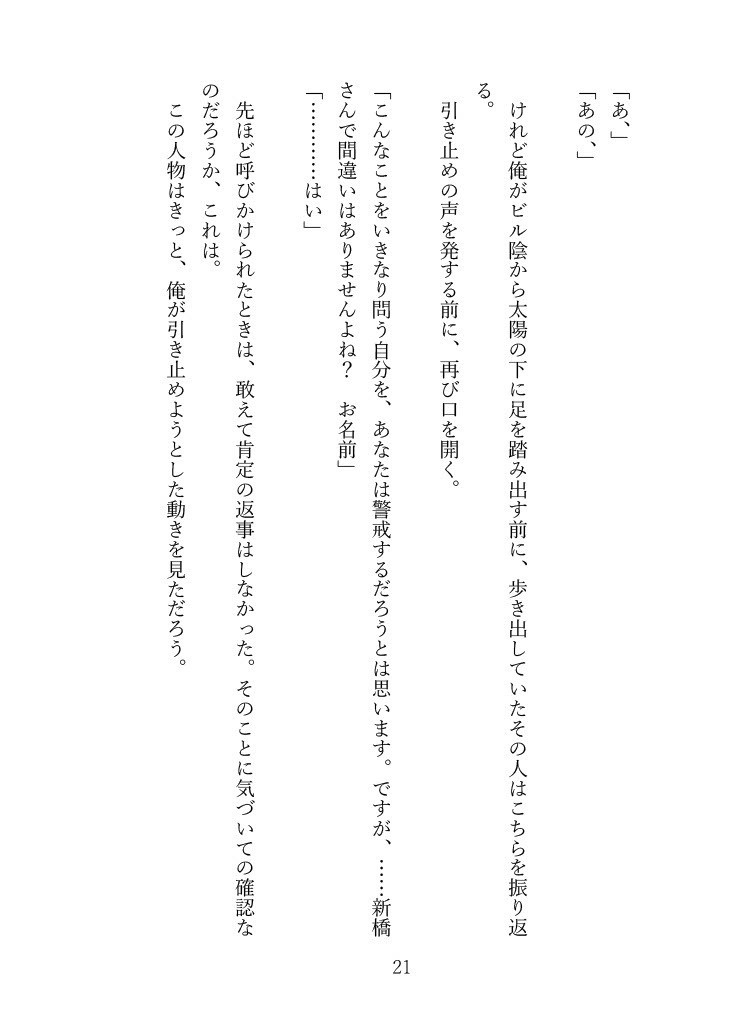 「あ、」
「あの、」
　けれど俺がビル陰から太陽の下に足を踏み出す前に、歩き出していたその人はこちらを振り返
る。
　引き止めの声を発する前に、再び口を開く。
「こんなことをいきなり問う自分を、あなたは警戒するだろうとは思います。ですが、……新橋
さんで間違いはありませんよね？　お名前」
「…………はい」
　先ほど呼びかけられたときは、敢えて肯定の返事はしなかった。そのことに気づいての確認な
のだろうか、これは。
　この人物はきっと、俺が引き止めようとした動きを見ただろう。
21